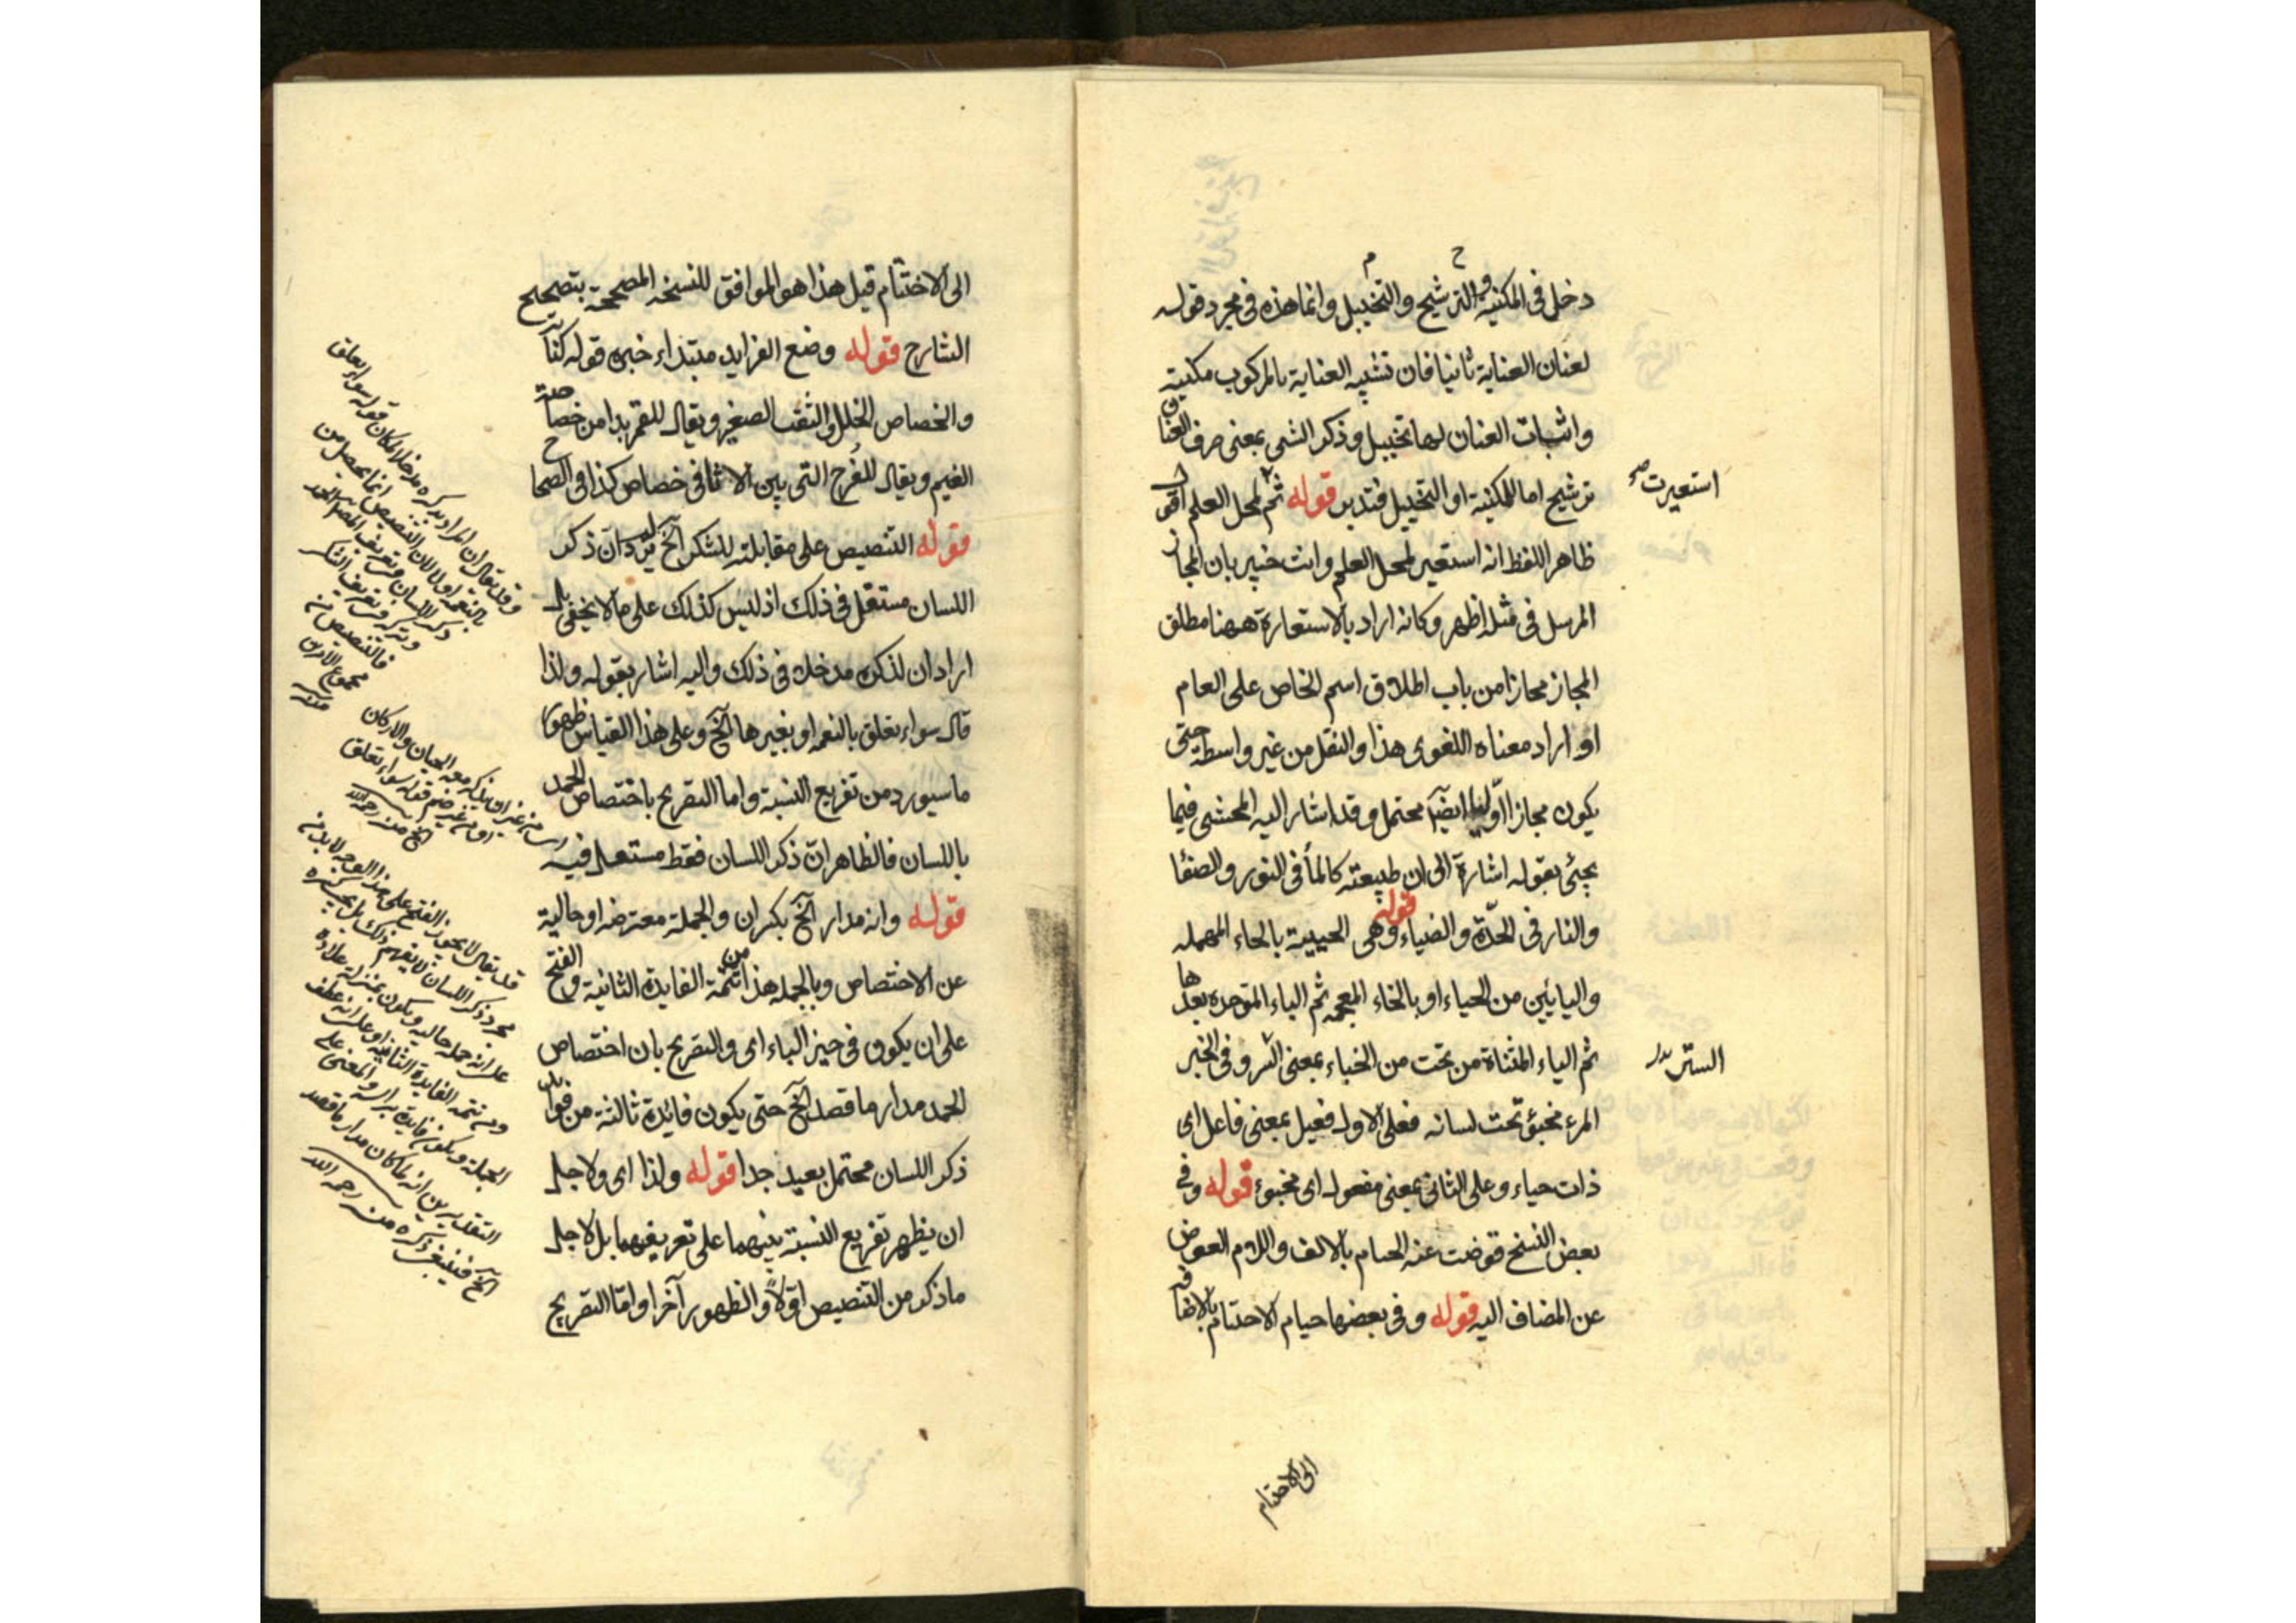 دخل فى المكنية والترشيح والتخييل وانما هذه فى مجرد قوله
لعنان العناية ثانيا فان تشبيه العناية بالمركوب مكنية
واثبات العنان لها تخييل وذكر الثنى بمعنى صرف العنان
ترشيح اما للمكنية او التخييل فتدبر قوله ثم لمحل العلم اقول
ظاهر اللفظ انه استعير لمحل العلم وانت خبير بان المجاز
المرسل فى مثله اظهر وكانه اراد بالاستعارة ههنا مطلق
المجاز مجازا من باب اطلاق اسم الخاص على العام
او اراد معناه اللغوى هذا والنقل من غير واسطة حتى
يكون مجازا اوليا ايضا محتمل وقد اشار اليه المحشى فيما
يجئ بقوله اشارة الى ان طبيعته كالماء فى النور والصفا
والنار فى الحدّة والضياء قوله وهى الحييية بالحاء المهمله
واليائين من الحياء او بالخاء المعجمه ثم الباء الموحده بعدها
ثم الياء المثناة من تحت من الخباء بمعنى الستر وفى الخبر
المرء مخبؤ تحت لسانه فعلى الاول فعيل بمعنى فاعل اى
ذات حياء وعلى الثانى بمعنى مفعول اى مخبوء قوله وفى
بعض النسخ قوضت عنه الخيام بالالف واللام العوض
عن المضاف اليه قوله وفى بعضها خيام الاختتام بالاضافه
استعيرت صح
الستر بدل
الى الاختتام
الى الاختتام قيل هذا هو الموافق للنسخه المصححة بتصحيح
الشارح قوله وضع الفرايد مبتداء خبره قوله كناية
والخصاص الخلل والثقب الصغير ويقال للقمر بدا من خصاصة
الغيم ويقال للفُرج التى بين الاثافى خصاص كذا فى الصحاح
قوله التنصيص على مقابلته للشكر آلخ لم يرد ان ذكر
اللسان مستقل فى ذلك اذ ليس كذلك على ما لا يخفى بل
اراد ان لذكره مدخلا فى ذلك واليه اشار بقوله ولذا
قال سواء تعلق بالنعمه او بغيرها آلخ وعلى هذا القياس ظهور
ما سيورد من تفريع النسبة واما التصريح باختصاص الحمد
باللسان فالظاهر انّ ذكر اللسان فقط مستعمل فيه
قوله وانه مدار آلخ بكسر ان والجملة معترضه او حالية
عن الاختصاص وبالجمله هذا من تتمّة الفايدة الثانية والفتح
على ان يكون فى حيز الباء اى والتصريح بان اختصاص
الحمد مدار ما قصد آلخ حتى يكون فائدة ثالثة من فوايد
ذكر اللسان محتمل بعيد جدا قوله ولذا اى ولاجل
ان يظهر تفريع النسبة بينهما على تعريفهما بل لاجل
ما ذكر من التنصيص اوّلا والظهور آخرا وامّا التصريح
وقد يقال ان المراد بذكره مدخلا لكان قوله سواء تعلق
بالنعمه اولا لان التنصيص انما يحصل من
ذكر اللسان فى تعريف
وتركه فى تعريف الشكر
فالتنصيص من
مجموع الامرين
منه
من غير ان يذكر معه الجنان والاركان
او من غير ضم قوله سواء تعلق
آلخ منه رحمه الله
قد يقال لا يجوز الفتح على هذا الوجه لابد من
مجرد ذكر اللسان
على انه جمله حاليه ويكون بمنزلة علاوة
ومن تتمه الفايدة الثانيه او على انه عطف
الجملة ويكون فايدة براسه والمعنى على
التقديرين انه لما كان مدار ما قصد
آلخ فينبغى ذكره منه رحمه الله